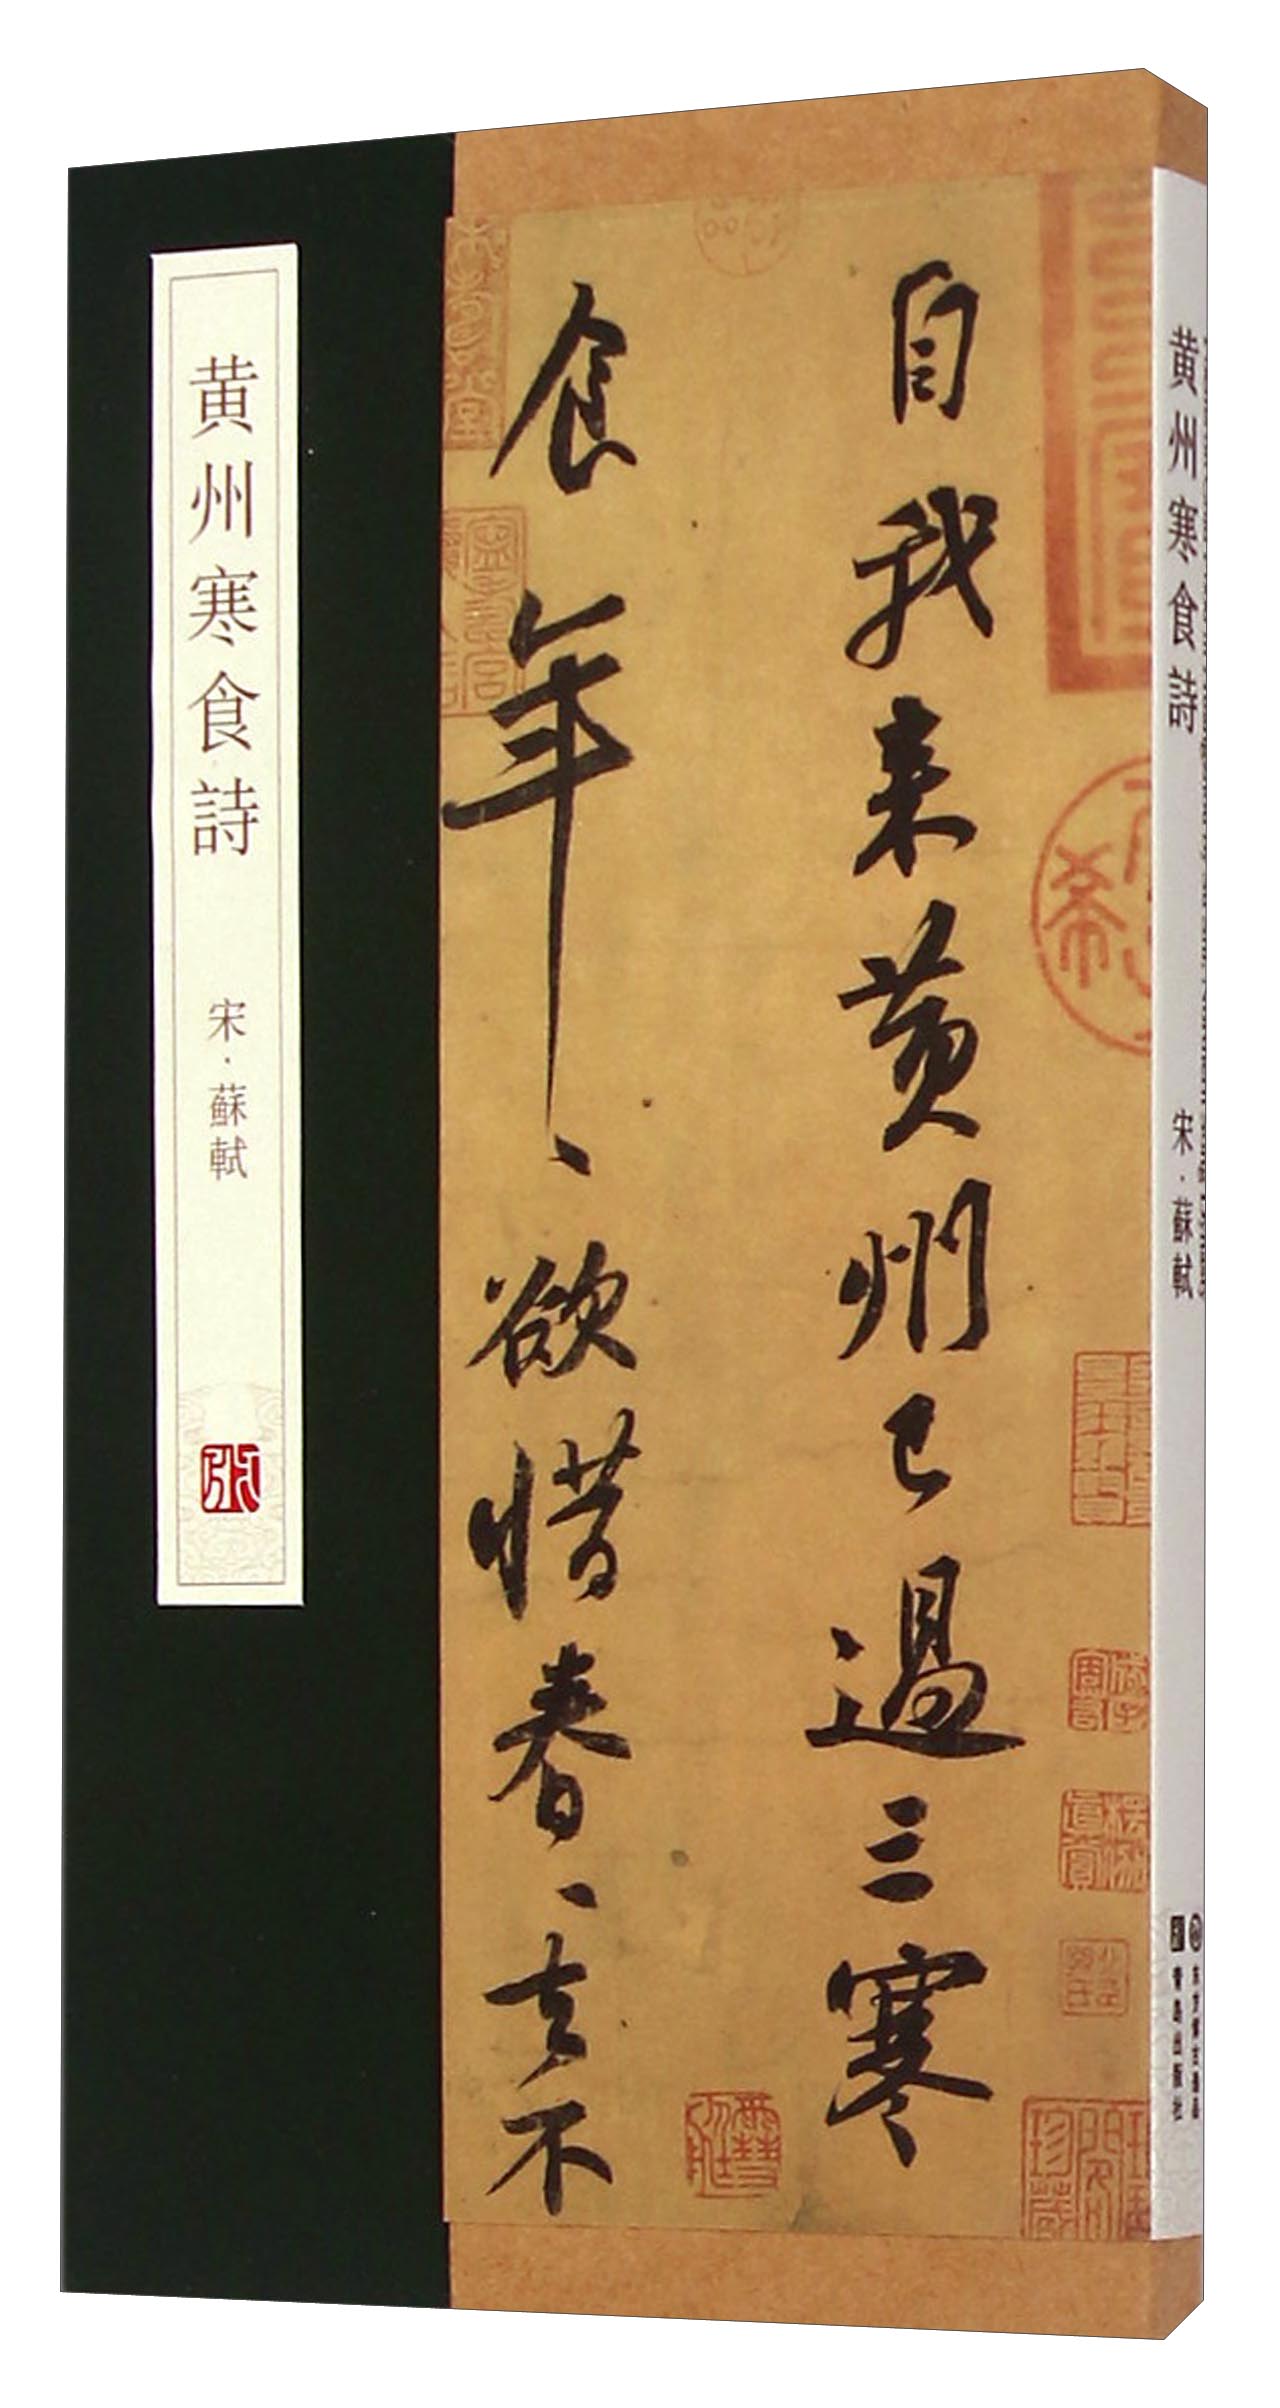 黄州寒食詩
宋·蘇軾
自我来黄州已過三寒
食年、欲惜春、去不
黄州寒食詩
宋·蘇軾
青島出版社